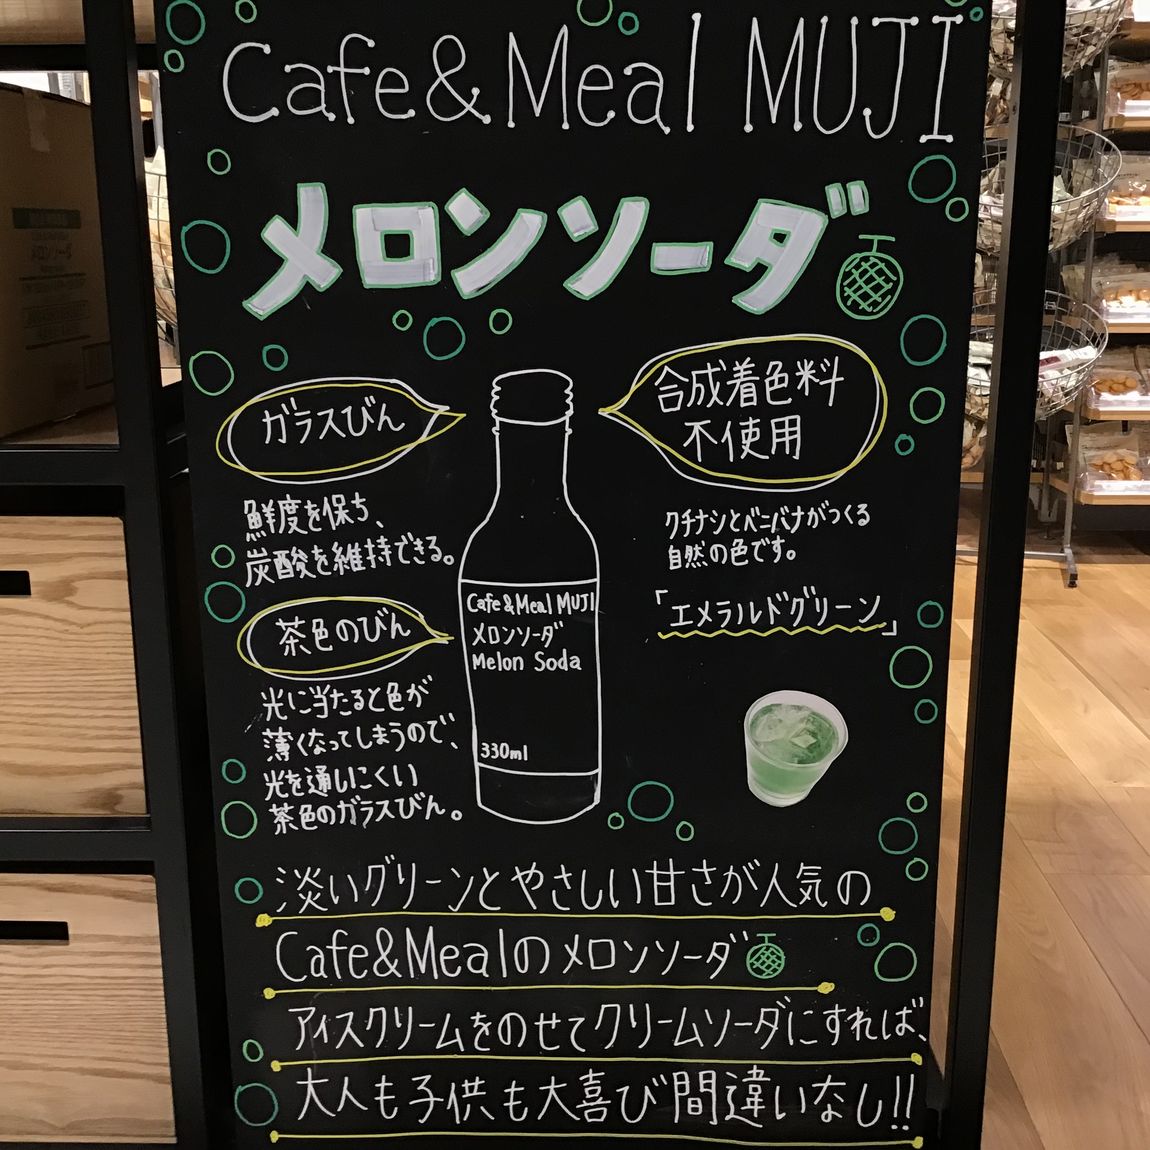 Cafe&Meal MUJI
メロンソーダ
ガラスびん
鮮度を保ち、
炭酸を維持できる。
茶色のびん
光に当たると色が
薄くなってしまうので、
光を通しにくい
茶色のガラスびん。
Cafe&Meal MUJI
メロンソーダ
Melon Soda
330ml
合成着色料
不使用
クチナシとベニバナがつくる
自然の色です。
「エメラルドグリーン」
淡いグリーンとやさしい甘さが人気の
Cafe&Mealのメロンソーダ
アイスクリームをのせてクリームソーダにすれば、
大人も子供も大喜び間違いなし!!
メロンソーダ